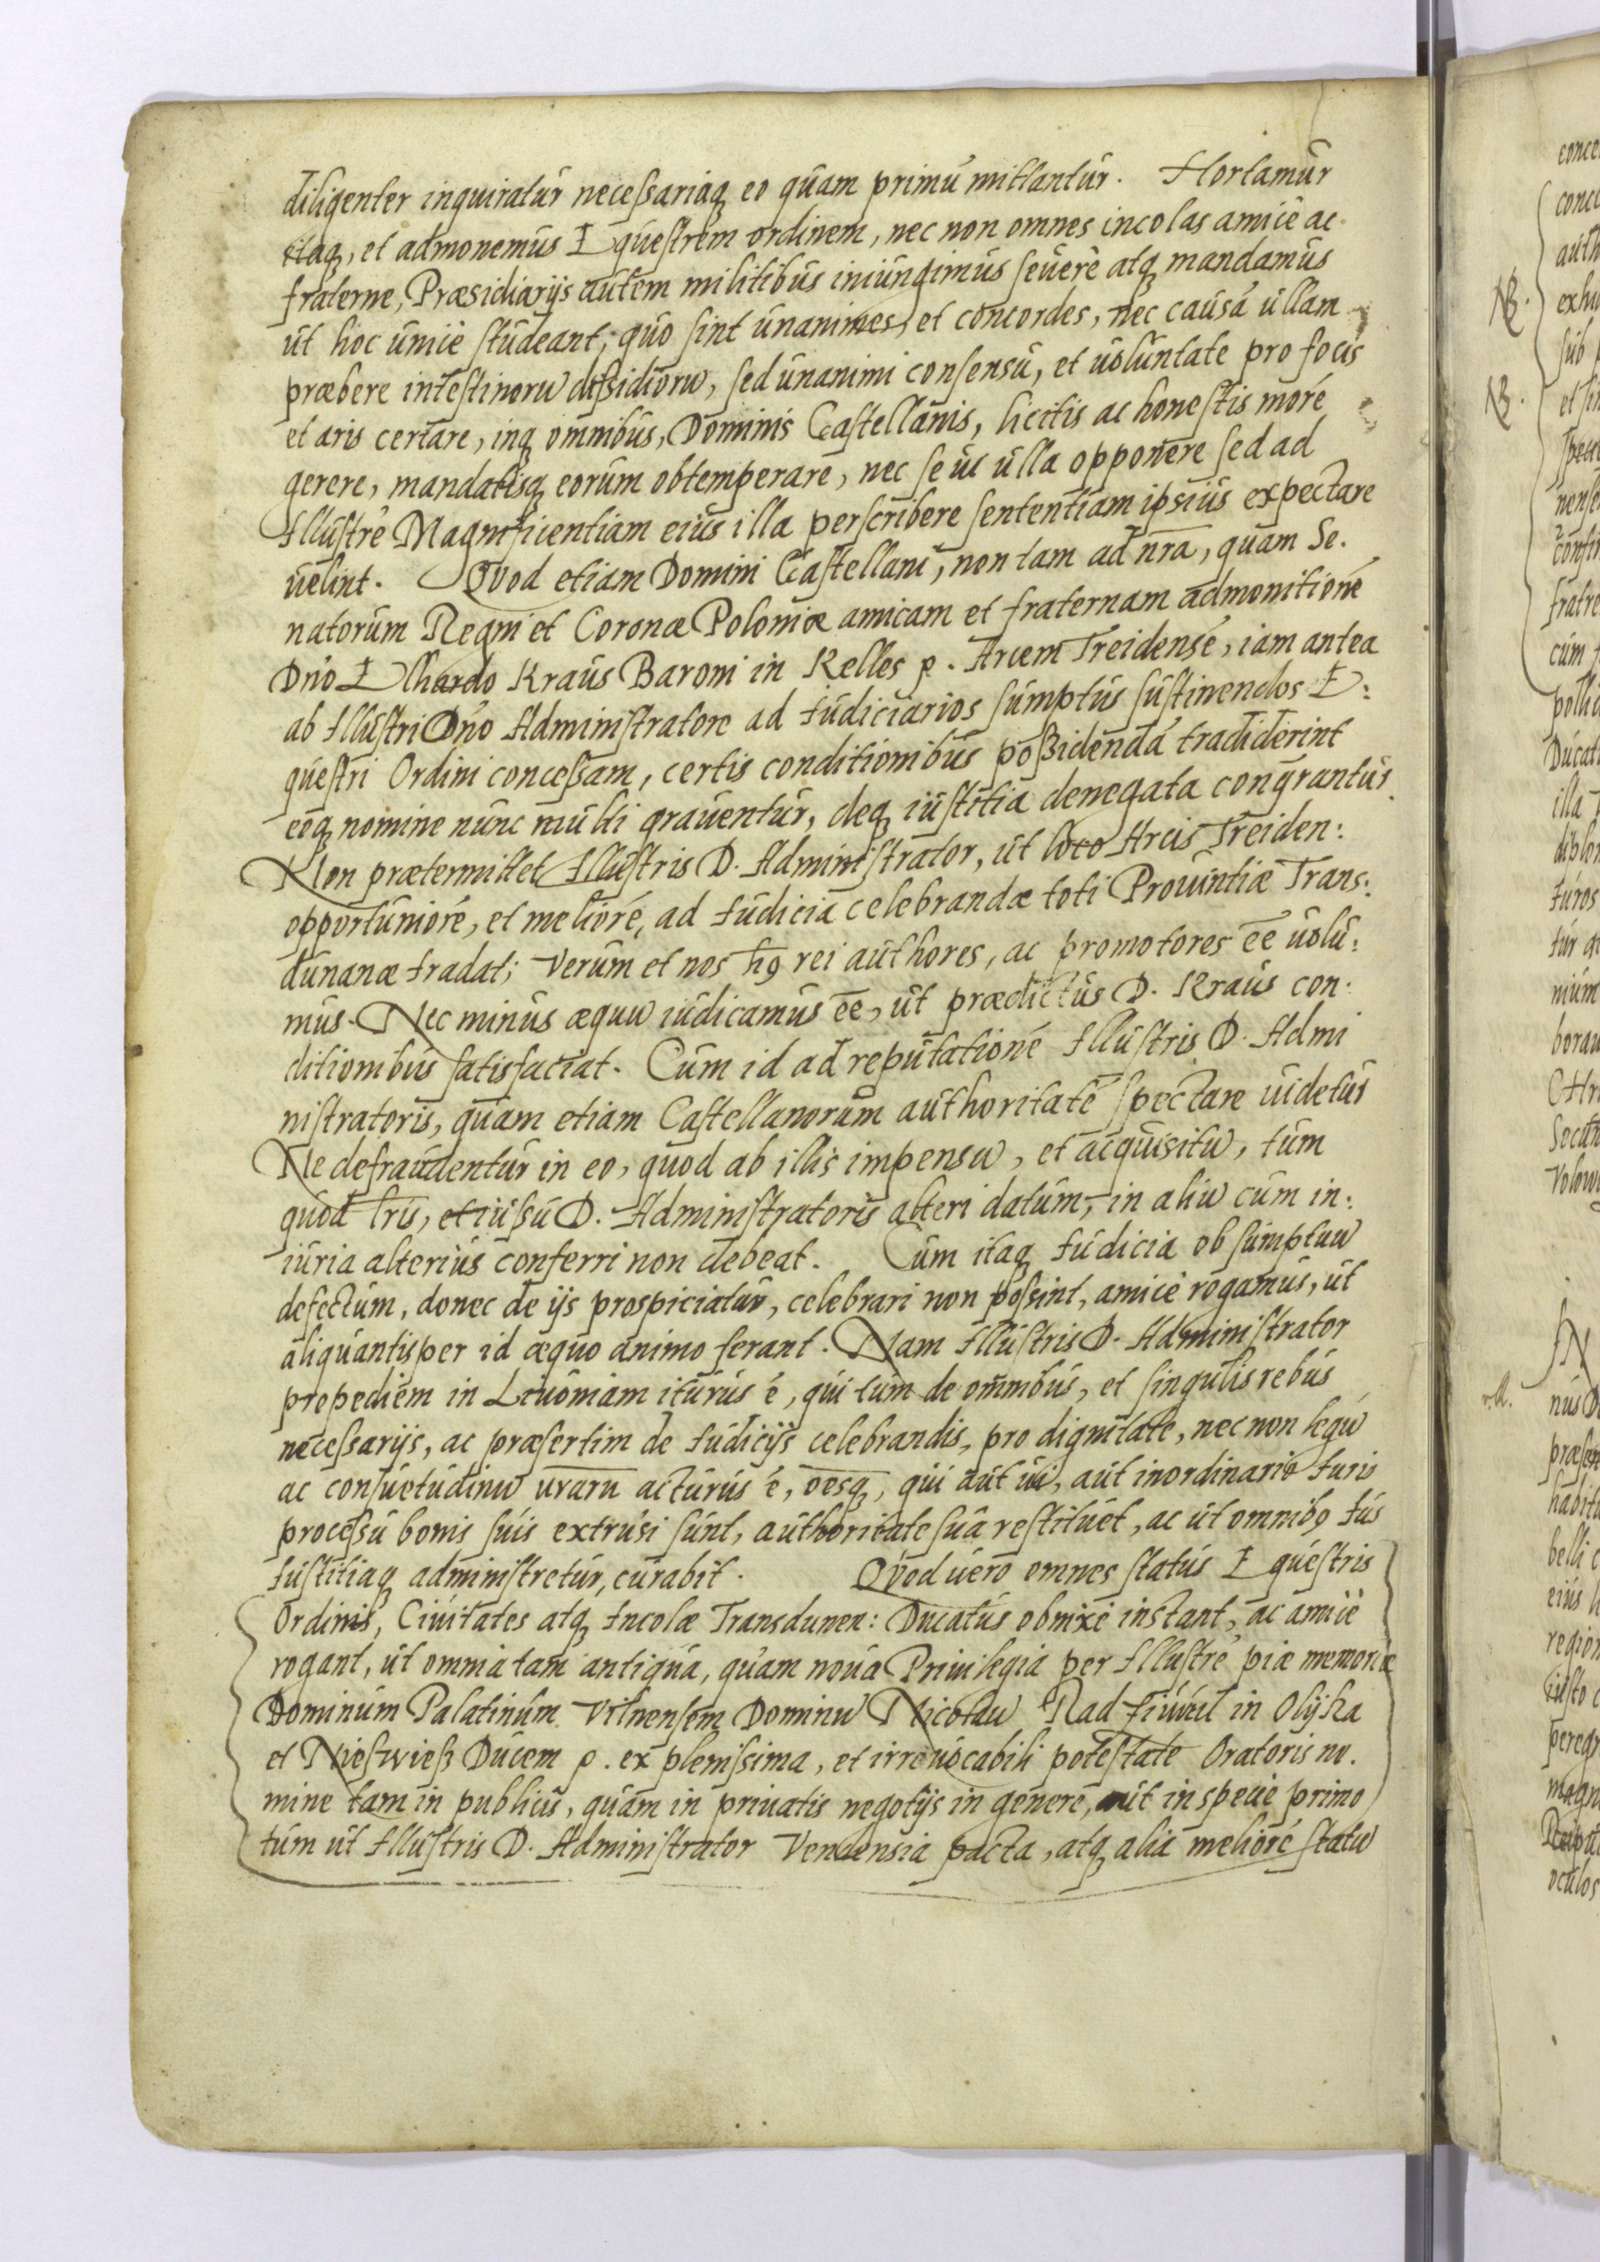 diligenter inquiratur necessariaq́ eo quam primū mittantur. Hortamur
itaq́, et admonemus Equestrem ordinem, nec non omnes incolas amicè ac
fraterne, Præsidiarijs autem militibus iniungimus seuerè atq́ mandamus
ut hoc unicè studeant, quo sint unanimes, et concordes, nec causā ullam
præbere intestinorū dissidiorū, sed unanimi consensu, et uoluntate pro focis
et aris certare, inq́ omnibus, Dominis Castellanis, licitis ac honestis morē
gerere, mandatisq́ eorum obtemperare, nec se ui ulla opponere sed ad
Illustrē Magnificentiam eius illa perscribere sententiam ipsius expectare
uelint. Quod etiam Domini Castellani, non tam ad nr̄a, quam Se.
natorum Regni et Coronæ Poloniæ amicam et fraternam admonitionē
Dn̄o Elhardo Kraus Baroni in Kelles ꝛ. Arcem Treidensē, iam antea
ab Illustri Dn̄o Administratore ad Iudiciarios sumptus sustinendos E:
questri Ordini concessam, certis conditionibus possidendā tradiderint
eoq́ nomine nunc multi grauentur, deq́ iustitia denegata congrantur.
Non prætermittet Illustris D. Administrator, ut loco Arcis Treiden:
opportuniorē, et meliorē, ad Iudicia celebrandæ toti Prouintiæ Trans:
dunanæ tradat; Verum et nos h9 rei authores, ac promotores ēē uolu:
mus. Nec minus æquū iudicamus ēē, ut prædictus D. Kraus con:
ditionibus satisfaciat. Cum id ad reputationē Illustris D. Admi
nistratoris, quam etiam Castellanorum authoritatē spectare uidetur
Ne defraudentur in eo, quod ab illis impensū, et acquisitū, tum
quod lr̄is, et iussu D. Administratoris alteri datum, in aliū cum in:
iuria alterius conferri non debeat. Cum itaq́ Iudicia ob sumptuū
defectum, donec de ijs prospiciatur, celebrari non possint, amicè rogamus, ut
aliquantisper id æquo animo ferant. Nam Illustris D. Administrator
propediem in Liuoniam iturus ē, qui tum de om̄ibus, et singulis rebus
necessarijs, ac præsertim de Iudicijs celebrandis, pro dignitate, nec non legū
ac consuetudinū ur̄arū acturus ē, oēsq́, qui aut ui, aut inordinario Iuris
processu bonis suis extrusi sunt, authoritate sua restituet, ac ut omnib9 Ius
Iustitiaq́ administretur, curabit. Quod uero omnes status Equestris
Ordinis, Ciuitates atq́ Incolæ Transdunen: Ducatus obnixè instant, ac amicè
rogant, ut omnia tam antiqua, quam noua Priuilegia per Illustrē piæ memoriæ
Dominum Palatinum Vilnensem Dominū Nicolaū Radziuiil in Olijka
et Nieswiesz Ducem ꝛ. ex plenissima, et irreuocabili potestate Oratoris no.
mine tam in publicis, quam in priuatis negotijs in genere, aut in specie primo
tum ut Illustris D. Administrator Vendensia pacta, atq́ alia meliorē statū